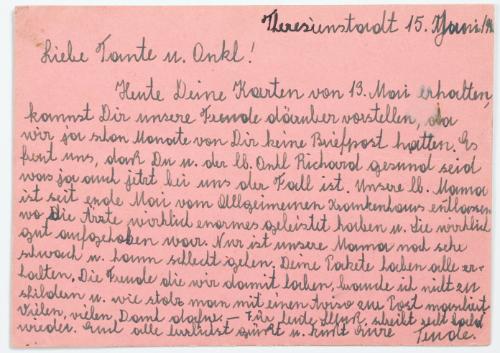 Theresienstadt 15. Juni
Liebe Tante u. Onkl!
Heute Deine Karten von 13. Mai erhalten,
kannst Dir unsere Freude darüber vorstellen, da
wir ja schon Monate von Dir keine Briefpost hatten. Es
freut uns, dass Du u. der lb. Onkl Richard gesund seid
was ja auch jetzt bei uns der Fall ist. Unsere lb. Mama
ist seit ende Mai vom Allgemeinen Krankenhaus entlassen
wo Die Ärzte wirklich enormes geleistet haben u. Sie wirklich
gut aufgehoben war. Nur ist unsere Mama noch sehr
schwach u. kann schlecht gehen. Deine Pakete haben alle er-
halten. Die Freude die wir damit haben, brauche ich nicht zu
schildern u. wie stolz man mit einen Aviso zur Post marschiert
Vielen, vielen Dank dafür. — Für heute Schluß, schreibt recht bald
wieder. Euch alle herzlichst grüßt u. küsst Eure